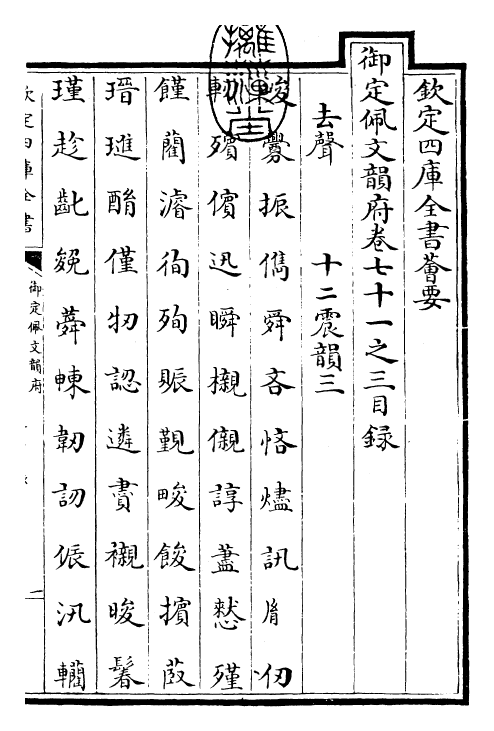 欽定四庫全書薈要
御定佩文韻府卷七十一之三目録
去聲 十二震韻三
峻 釁 振 儁 舜 吝 悋 燼 訊 胤 仞
軔 殯 儐 迅 瞬 櫬 儭 諄 藎 憖 殣
饉 藺 濬 徇 殉 賑 覲 畯 餕 擯 菣
瑨 璡 酳 僅 牣 認 遴 賮 襯 晙 鬊
瑾 趁 齔 蕣 韌 訒 侲 汛 轥
欽定四庫全書
御定佩文韻府
一